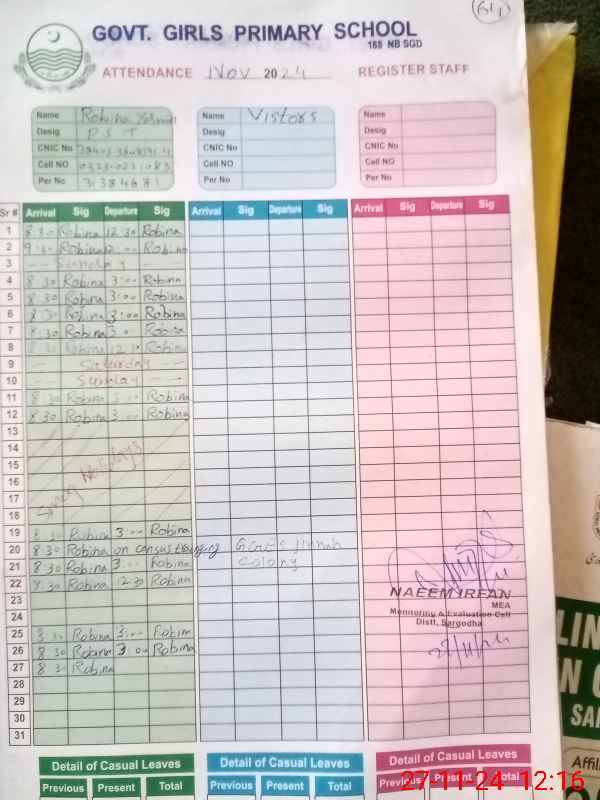 GOVT. GIRLS PRIMARY SCHOOL
188 NB SGD
ATTENDANCE Nov 2024 REGISTER STAFF
Name Robina Yasmin Name Vistors Name
Desig P S T Desig Desig
CNIC No CNIC No CNIC No
Cell NO Cell NO Cell NO
Per No 31384681 Per.No Per No
Sr # Arrival Sig Departure Sig Arrival Sig Departure Sig Arrival Sig Departure Sig
1 8:30 Robina 12:30 Robina
2 9:00 Robina 12:00 Robina
3 -- Sunday --
4 8:30 Robina 3:00 Robina
5 8:30 Robina 3:00 Robina
6 8:30 Robina 3:00 Robina
7 8:30 Robina 3:00 Robina
8 8:30 Robina 12:30 Robina
9 -- Saturday --
10 -- Sunday --
11 8:30 Robina 3:00 Robina
12 8:30 Robina 3:00 Robina
13
14
15
16 Smog Holidays
17
18
19 8:30 Robina 3:00 Robina
20 8:30 Robina on census Jinnah
21 8:30 Robina 3:00 Robina Colony
22 8:30 Robina 12:30 Robina
23 NAEEM IRFAN
MEA
24 Monitoring & Evaluation Cell
Distt, Sargodha
25 Robina 3:00 Robina
26 8:30 Robina 3:00 Robina
27 8:30 Robina
28
29
30
31
Detail of Casual Leaves Detail of Casual Leaves Detail of Casual Leaves
Previous Present Total Previous Present Total Previous Present Total
27-11-24 12:16